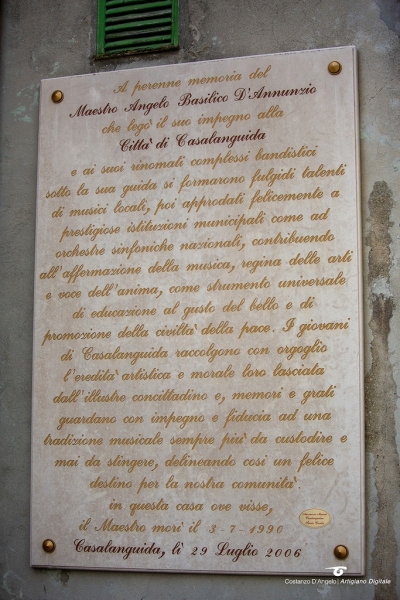 A perenne memoria del
Maestro Angelo Basilico D'Annunzio
che legò il suo impegno alla
Città di Casalanguida
e ai suoi rinomati complessi bandistici
sotto la sua guida si formarono fulgidi talenti
di musici locali, poi approdati felicemente a
prestigiose istituzioni municipali come ad
orchestre sinfoniche nazionali, contribuendo
all'affermazione della musica, regina delle arti
e voce dell'anima, come strumento universale
di educazione al gusto del bello e di
promozione della civiltà della pace. I giovani
di Casalanguida raccolgono con orgoglio
l'eredità artistica e morale loro lasciata
dall'illustre concittadino e, memori e grati
guardano con impegno e fiducia ad una
tradizione musicale sempre più da custodire e
mai da stingere, delineando così un felice
destino per la nostra comunità.
in questa casa ove visse,
il Maestro morì il 3-7-1990
Casalanguida, lì 29 Luglio 2006
Costanzo D'Angelo | Artigiano Digitale